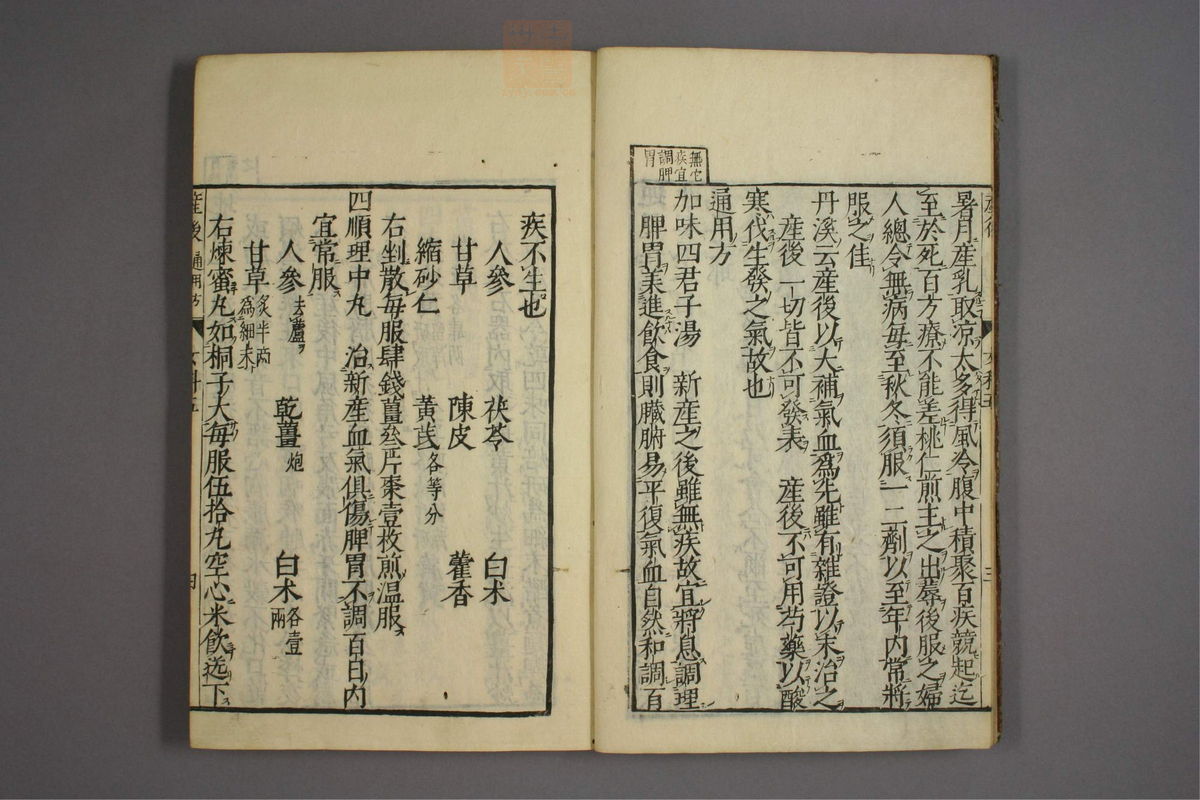 暑月産乳取凉太多得風冷腹中積聚百疾競起迄
至於死百方療不能差桃仁煎主之出蓐後服之婦
人總令無病毎至秋冬須服一二劑以至年内常將
服之佳
丹溪云産後以大補氣血爲先雖有雜證以末治之
産後一切皆不可發表　産後不可用芍藥以酸
寒伐生發之氣故也
通用方
無它
疾宜
調脾
胃
加味四君子湯　新産之後雖無疾故宜將息調理
脾胃美進飲食則臟腑易平復氣血自然和調百
疾不生也
人參　茯苓　白术
甘草　陳皮　藿香
縮砂仁　黄芪各等分
右剉散毎服肆錢薑叁片棗壹枚煎温服
四順理中丸　治新産血氣俱傷脾胃不調百日内
宜常服
人參去蘆　乾薑炮　白术各壹兩
甘草炙半兩爲細末
右煉蜜丸如梧子大毎服伍拾丸空心米飲送下
産後　通用方　女科五　四